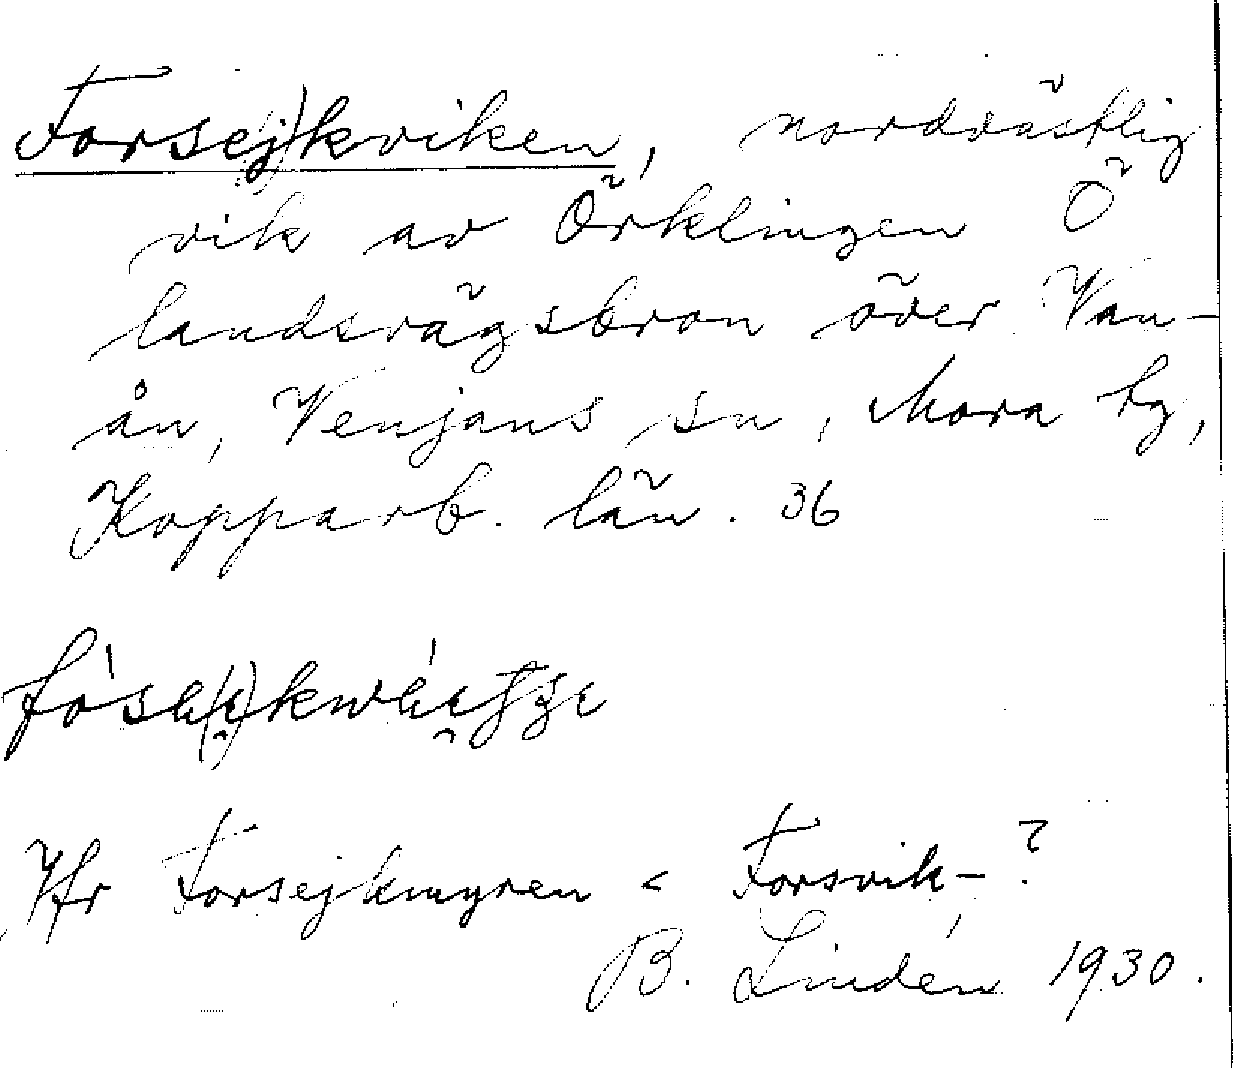 Forse(j)kviken, nordvästlig
vik av Örklingen Ö
landsvägsbron över Van-
ån, Venjans sn, Mora tg,
Kopparb. län. 36
Jfr Forsejkmyren < Forsvik-?
B. Lindén 1930.